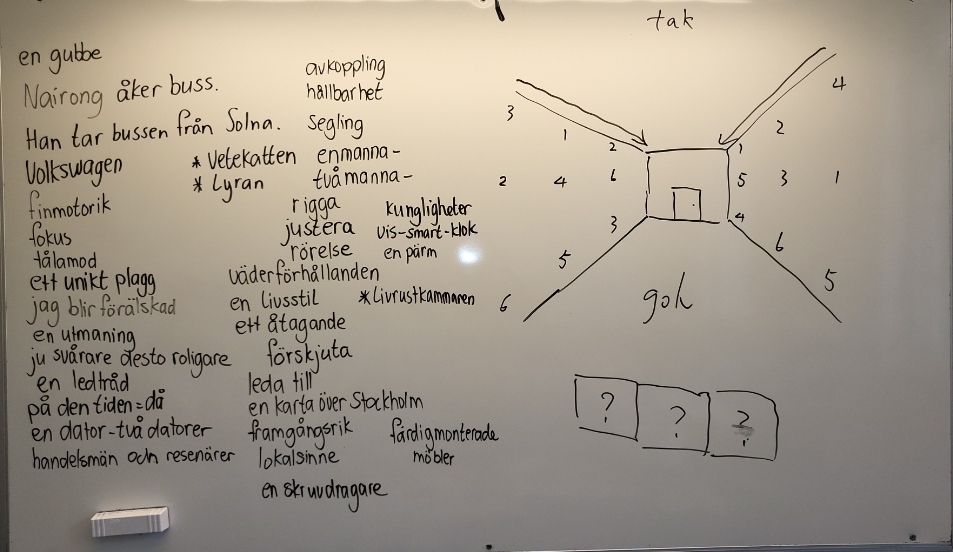 en gubbe
Nairong åker buss.
Han tar bussen från Solna.
Volkswagen
finmotorik
fokus
tålamod
ett unikt plagg
jag blir förälskad
en utmaning
ju svårare desto roligare
en ledtråd
på den tiden = då
en dator - två datorer
handelsmän och resenärer
* Vetekatten
* Lyran
avkoppling
hållbarhet
segling
enmanna-
tvåmanna-
rigga
justera
rörelse
väderförhållanden
en livsstil
ett åtagande
förskjuta
leda till
en karta över Stockholm
framgångsrik
lokalsinne
en skruvdragare
kungligheter
vis-smart-klok
en pärm
* Livrustkammaren
färdigmonterade
möbler
tak
3 4
1 2 1 2
2 4 6 5 3 1
3 4
5 6
6 5
? ? ?